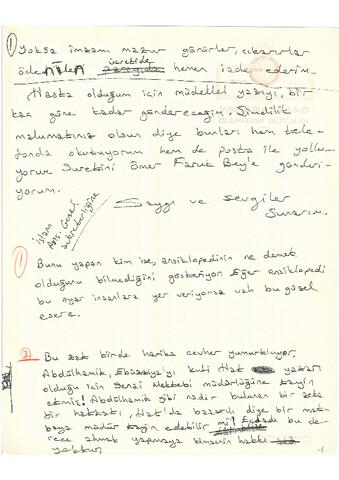 ① Yoksa imzamı mazur görürler, çıkarırlar
ödenilen ücretide hemen iade ederim.
Hasta olduğum için müdellel yazıyı, bir
kaç güne kadar göndereceğim. Şimdilik
malumatınız olsun diye bunları hem tele-
fonda okutuyorum hem de posta ile yollu-
yorum. Suretini Ömer Faruk Bey'e gönderi-
yorum.
Saygı ve sevgiler
Sunarım.
İslam
Ans. Genel
sekreterliğine
① Bunu yapan kim ise, ansiklopedinin ne demek
olduğunu bilmediğini gösteriyor. Eğer ansiklopedi
bu ayar insanlara yer veriyorsa vah bu güzel
esere.
② Bu zat birde harika cevher yumurtluyor,
Abdülhamik, Ebüzziya'yı kufi Hat yazarı
olduğu için Sanai Mektebi müdürlüğüne tayin
etmiş! Abdülhamik gibi nadir bulunan bir zeka
bir hattatı, Hat'da başarılı diye bir mek-
tebe müdür tayin edebilir mi! bu de-
rece ahmak yapmaya kimsenin hakkı
yoktur.